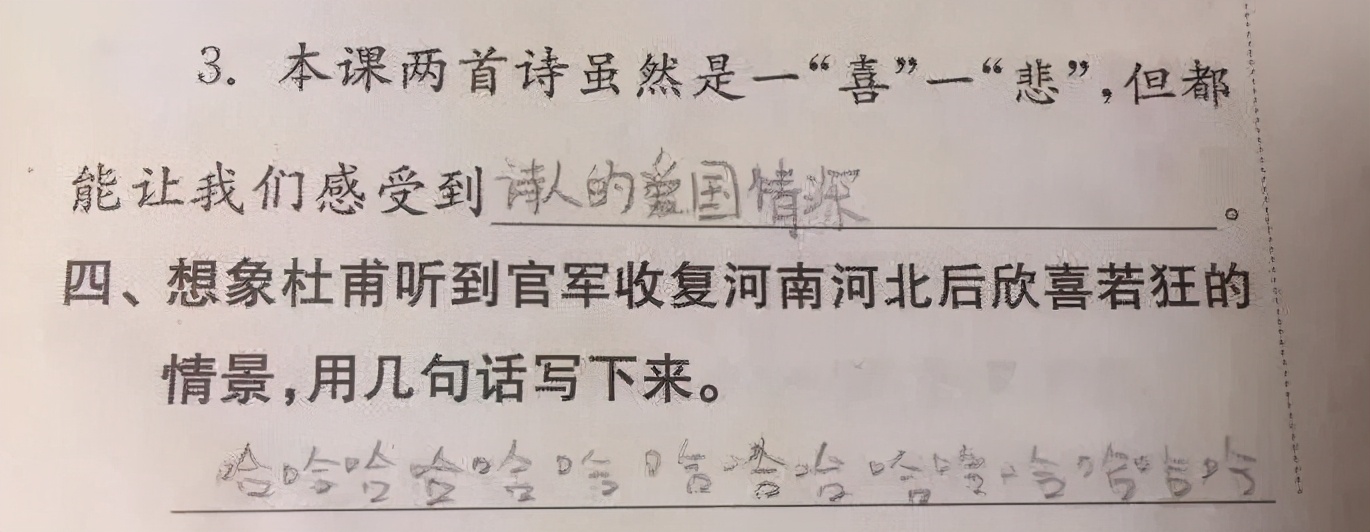 3. 本课两首诗虽然是一“喜”一“悲”,但都
能让我们感受到诗人的爱国情深。
四、想象杜甫听到官军收复河南河北后欣喜若狂的
情景,用几句话写下来。
哈哈哈哈哈哈哈哈哈哈嘻哈哈哈哈